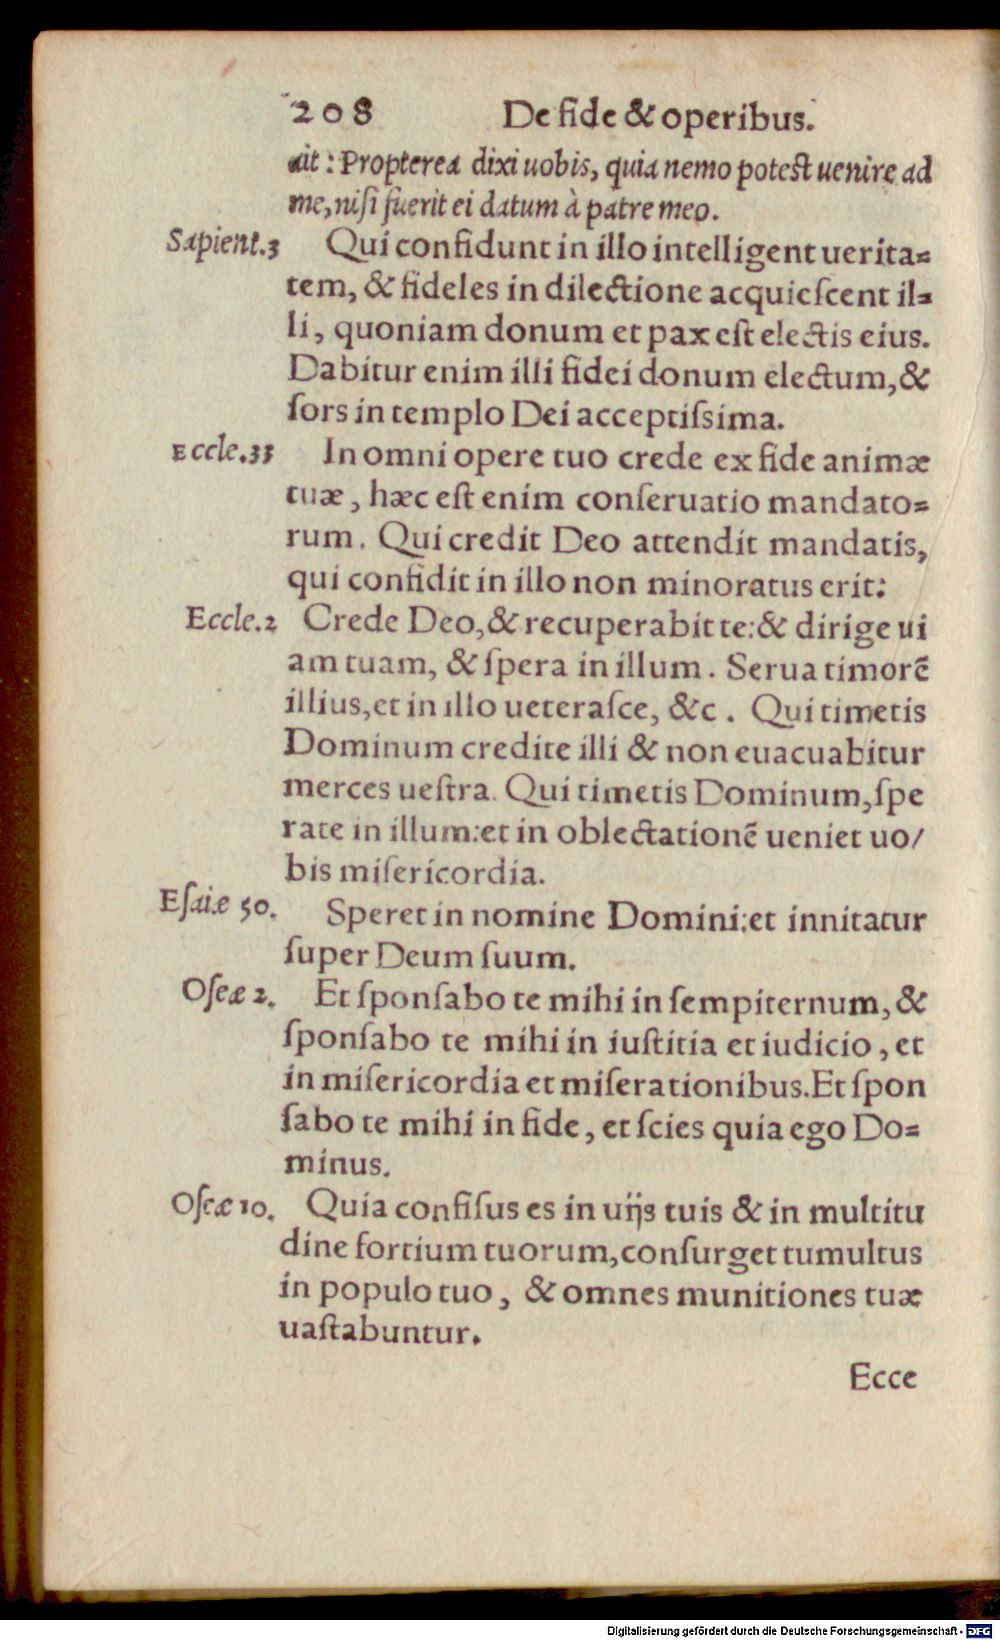 208 De fide & operibus.
ait: Propterea dixi uobis, quia nemo potest uenire ad
me, nisi fuerit ei datum à patre meo.
Sapient.3 Qui confidunt in illo intelligent uerita=
tem, & fideles in dilectione acquieſcent il=
li, quoniam donum et pax eſt electis eius.
Dabitur enim illi fidei donum electum, &
ſors in templo Dei acceptiſsima.
Eccle.33 In omni opere tuo crede ex fide animæ
tuæ, hæc eſt enim conſeruatio mandato=
rum. Qui credit Deo attendit mandatis,
qui confidit in illo non minoratus erit:
Eccle.2 Crede Deo, & recuperabit te: & dirige ui
am tuam, & ſpera in illum. Serua timorẽ
illius, et in illo ueteraſce, &c. Qui timetis
Dominum credite illi & non euacuabitur
merces ueſtra. Qui timetis Dominum, ſpe
rate in illum: et in oblectationẽ ueniet uo/
bis miſericordia.
Eſaiæ 50. Speret in nomine Domini: et innitatur
ſuper Deum ſuum.
Oſeæ 2. Et ſponſabo te mihi in ſempiternum, &
ſponſabo te mihi in iuſtitia et iudicio, et
in miſericordia et miſerationibus. Et ſpon
ſabo te mihi in fide, et ſcies quia ego Do=
minus.
Oſeæ 10. Quia confiſus es in uijs tuis & in multitu
dine fortium tuorum, conſurget tumultus
in populo tuo, & omnes munitiones tuæ
uaſtabuntur.
Ecce
Digitalisierung gefördert durch die Deutsche Forschungsgemeinschaft - DFG